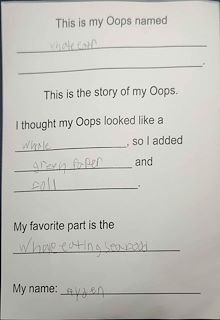 This is my Oops named
whale eatr
.
This is the story of my Oops.
I thought my Oops looked like a
whale, so I added
green paper and
foll.
My favorite part is the
whale eating seaweed
My name: ayden